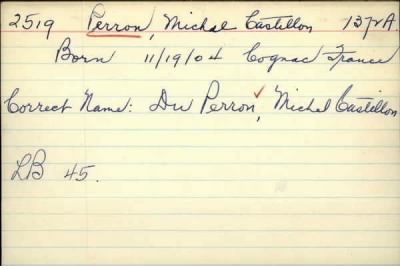 2519 Perron, Michel Castillon 137rA.
Born 11/19/04 Cognac France
Correct Name: Du Perron, Michel Castillon
LB 45.